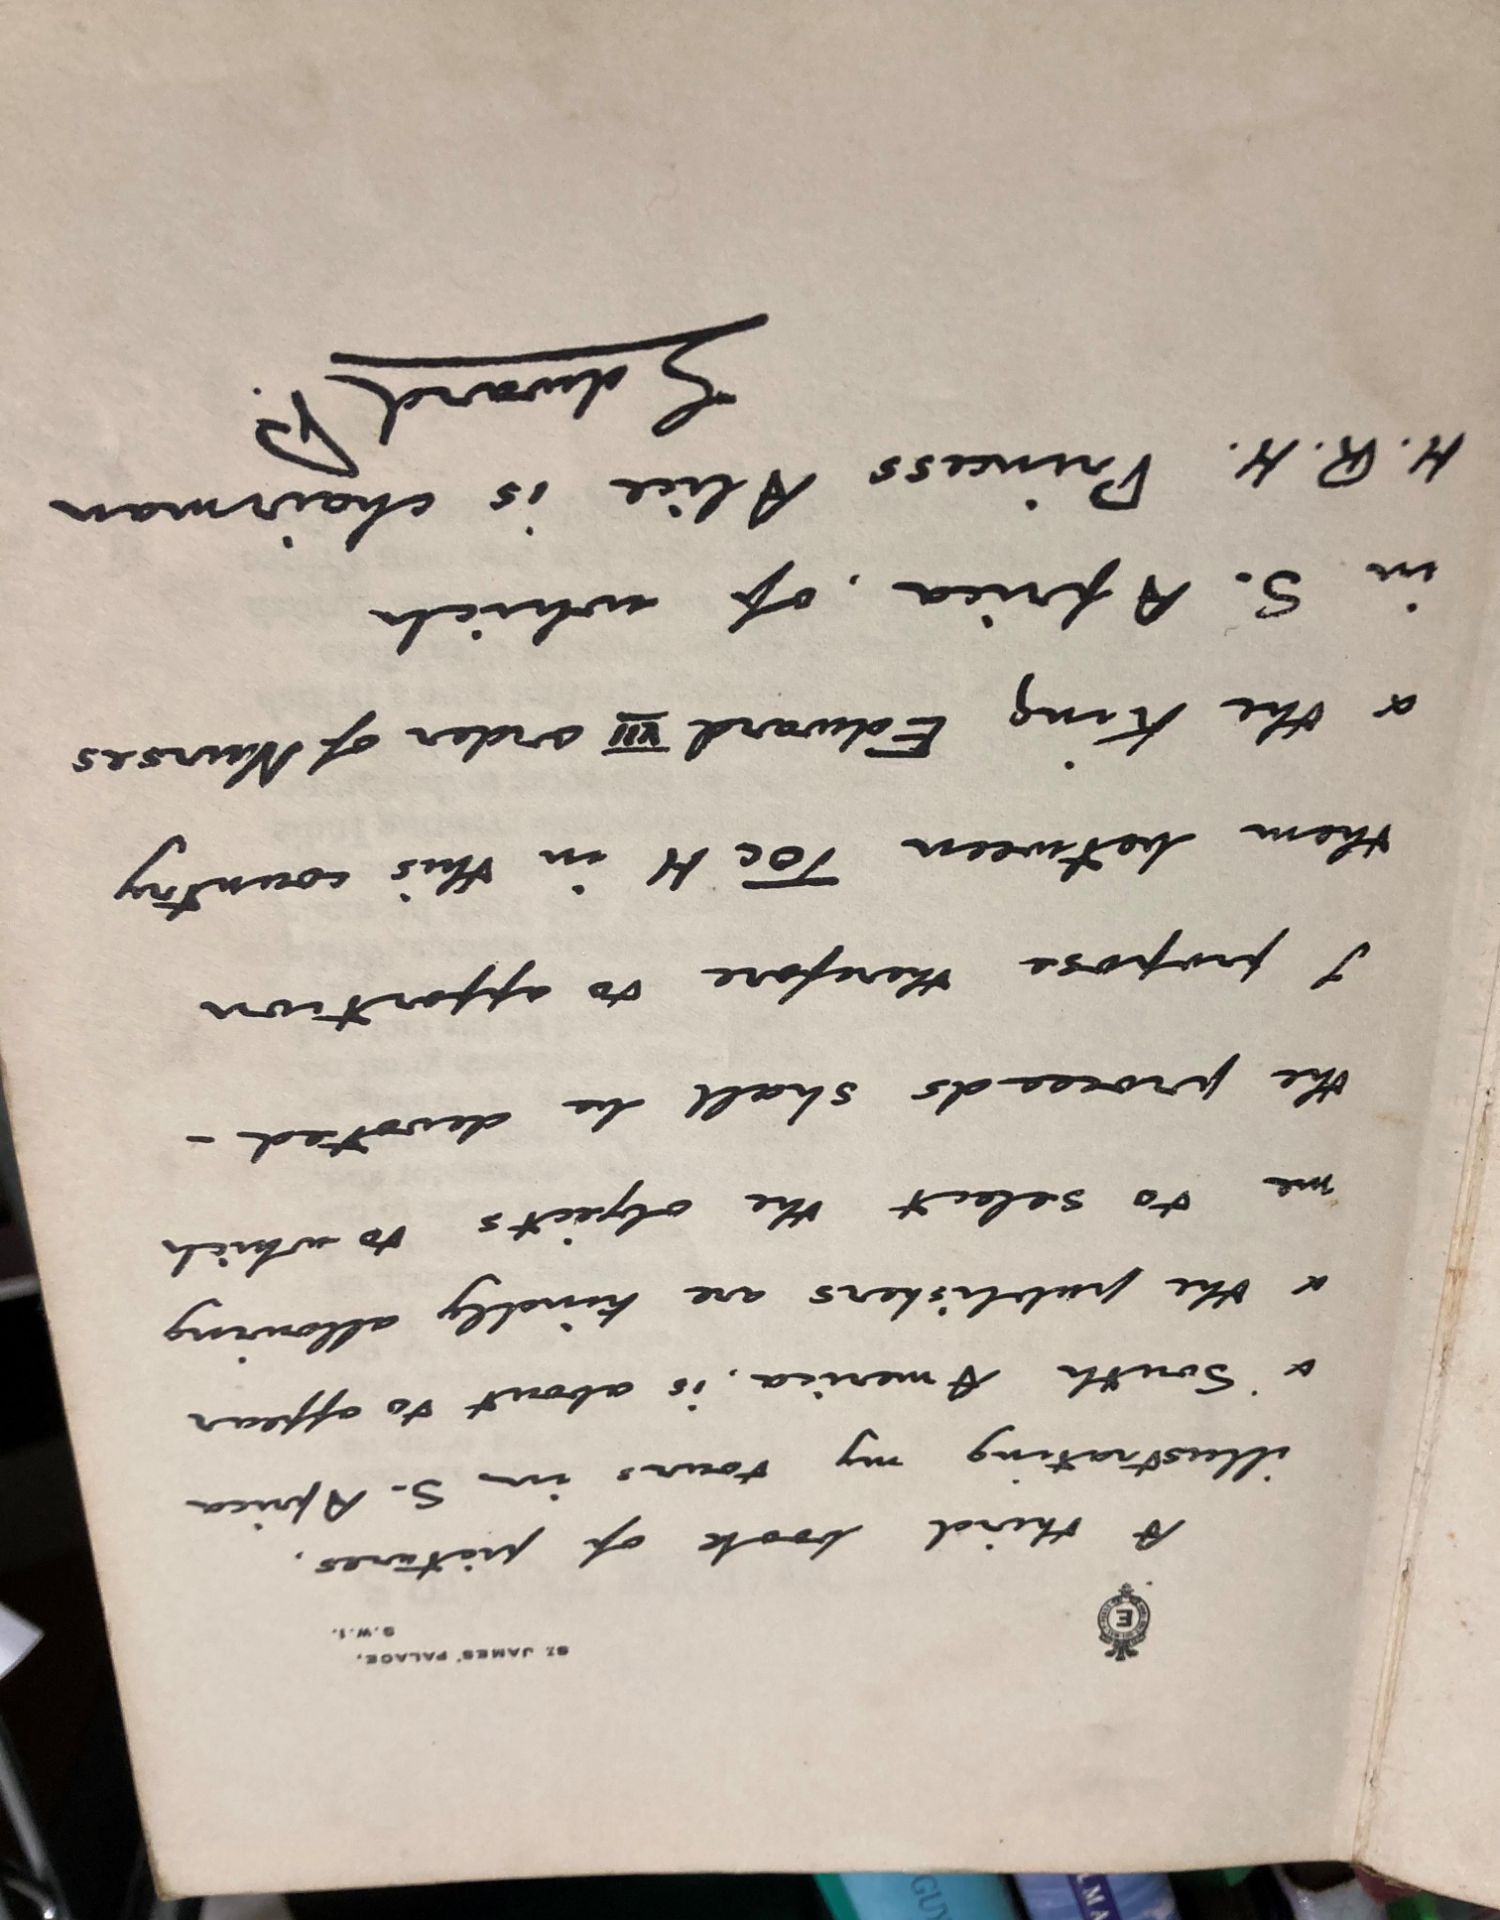 E
ST. JAMES' PALACE,
S.W.1.
A third book of pictures,
illustrating my tours in S. Africa
& South America, is about to appear
& the publishers are kindly allowing
me to select the objects to which
the proceeds shall be devoted –
I propose therefore to apportion
them between Toc H in this country
& the King Edward VII order of Nurses
in S. Africa, of which
H.R.H. Princess Alice is chairman
Edward P.
GUY
LMA